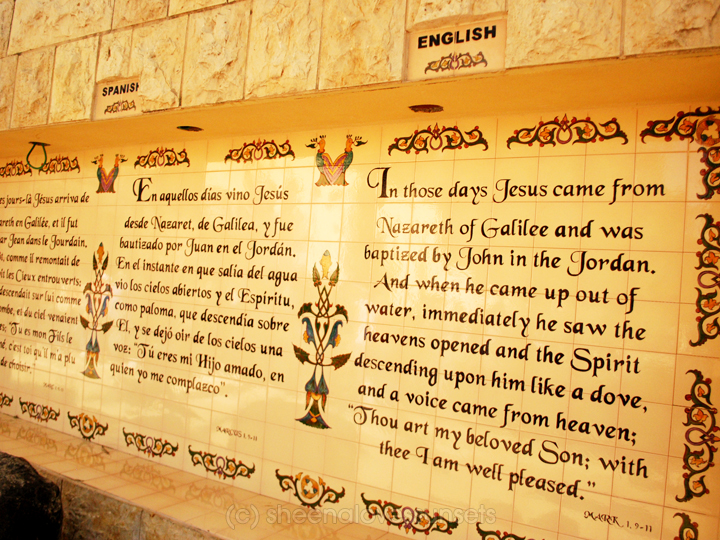 es jours-là Jésus arriva de
areth en Galilée, et il fut
ar Jean dans le Jourdain.
t, comme il remontait de
it les Cieux entrouverts;
descendait sur lui comme
mbe, et du ciel venaient
es: "Tu es mon Fils le
né, c'est toi qu'il m'a plu
de choisir."
SPANISH
En aquellos días vino Jesús
desde Nazaret, de Galilea, y fue
bautizado por Juan en el Jordán.
En el instante en que salía del agua
vio los cielos abiertos y el Espíritu,
como paloma, que descendía sobre
Él, y se dejó oir de los cielos una
voz: "Tú eres mi Hijo amado, en
quien yo me complazco".
MARCOS 1, 9-11
ENGLISH
In those days Jesus came from
Nazareth of Galilee and was
baptized by John in the Jordan.
And when he came up out of
water, immediately he saw the
heavens opened and the Spirit
descending upon him like a dove,
and a voice came from heaven;
"Thou art my beloved Son; with
thee I am well pleased."
MARK 1, 9-11
(c) sheenalovessunsets